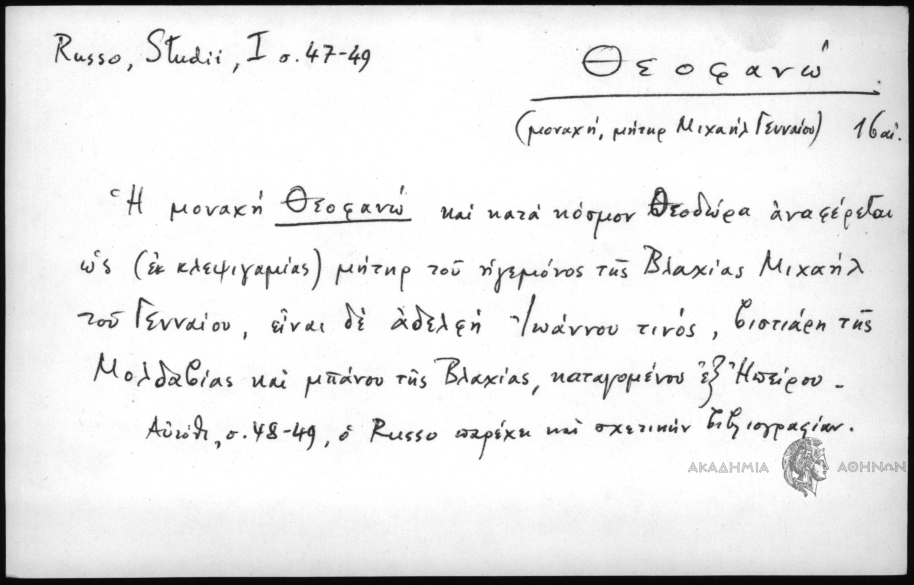 Russo, Studii, I σ. 47-49
Θεοφανώ
(μοναχή, μήτηρ Μιχαήλ Γενναίου) 16 αἰ.
Ἡ μοναχή Θεοφανώ καί κατά κόσμον Θεοδώρα ἀναφέρεται
ὡς (ἐκ κλεψιγαμίας) μήτηρ τοῦ ἡγεμόνος τῆς Βλαχίας Μιχαήλ
τοῦ Γενναίου, εἶναι δέ ἀδελφή Ἰωάννου τινός, βιστιάρη τῆς
Μολδαβίας καί μπάνου τῆς Βλαχίας, καταγομένου ἐξ Ἠπείρου.
Αὐτόθι, σ. 48-49, ὁ Russo παρέχει καί σχετικήν βιβλιογραφίαν.
ΑΚΑΔΗΜΙΑ ΑΘΗΝΩΝ